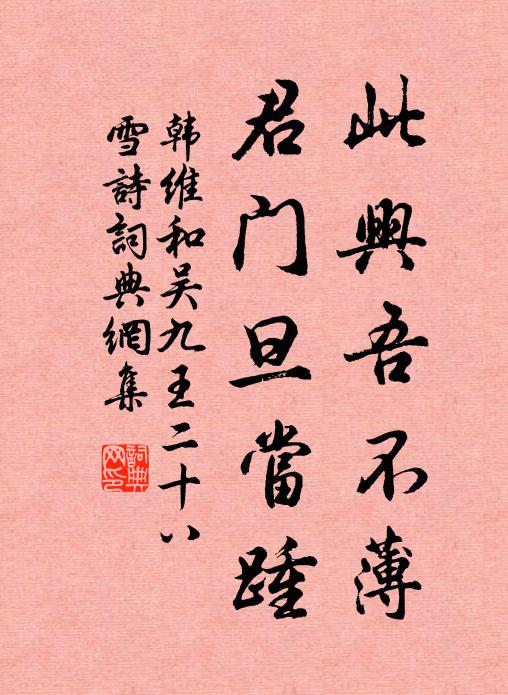 此興吾不薄
君门旦當踵
韩維和吴九王二十八
雪詩詞典網集
詞典网印